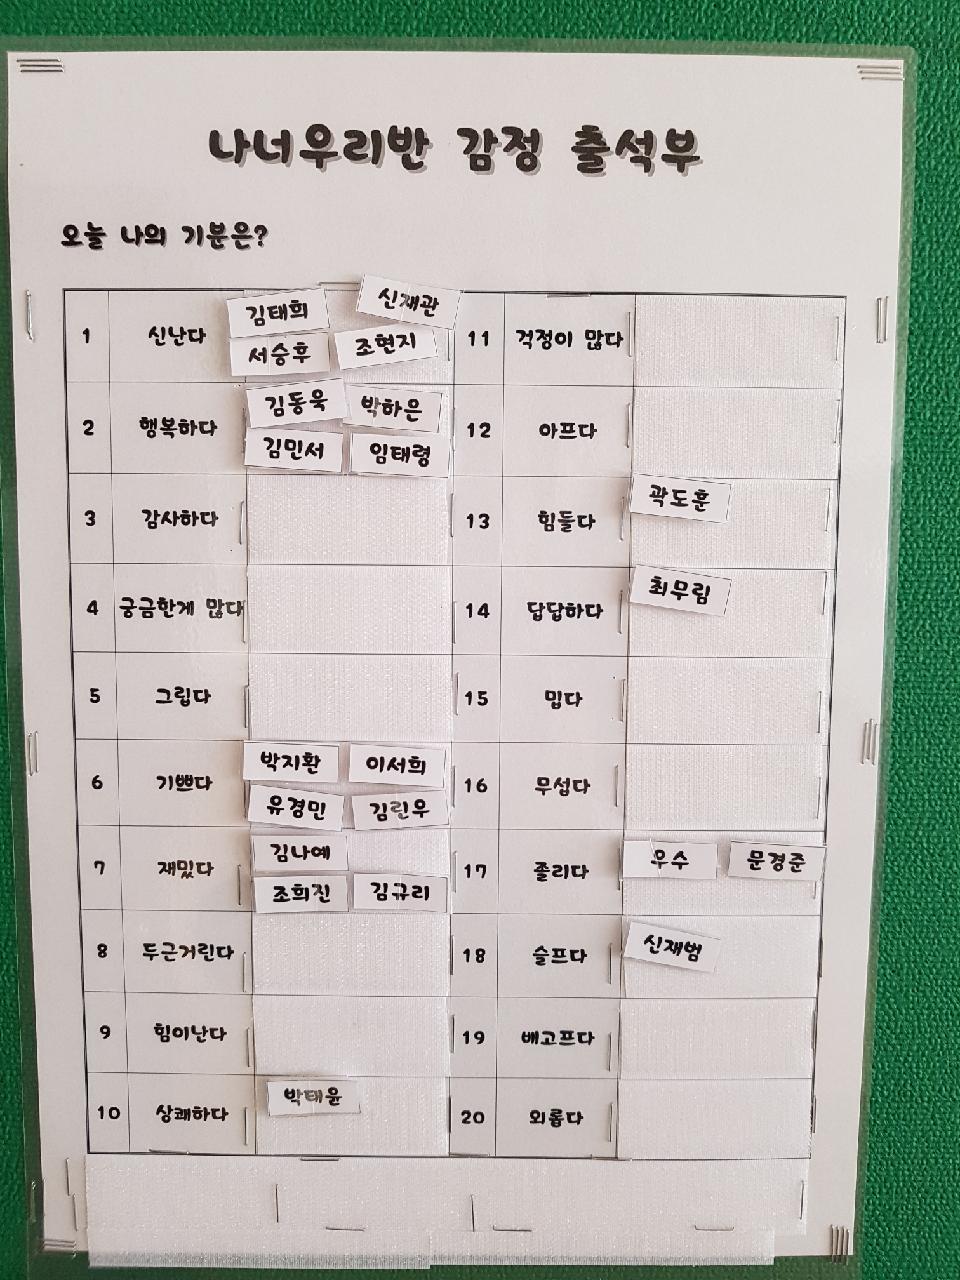 나너우리반 감정 출석부
오늘 나의 기분은?
1 신난다 김태희 신재관 서승후 조현지
2 행복하다 김동욱 박하은 김민서 임태령
3 감사하다
4 궁금한게 많다
5 그립다
6 기쁘다 박지환 이서희 유경민 김린우
7 재밌다 김나예 조희진 김규리
8 두근거린다
9 힘이난다
10 상쾌하다 박태윤
11 걱정이 많다
12 아프다
13 힘들다 곽도훈
14 답답하다 최무림
15 밉다
16 무섭다
17 졸리다 우수 문경준
18 슬프다 신재범
19 배고프다
20 외롭다